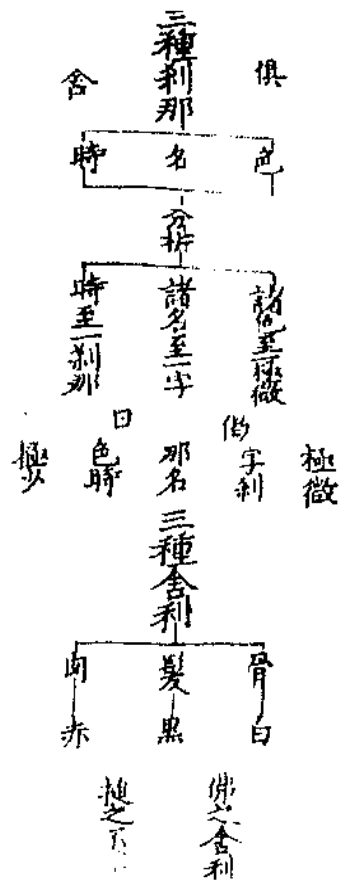 俱
舍
三種刹那
色
名
時
分析
諸色至一極微
諸名至一字
時至一刹那
偈
曰
極微
字刹
那名
色時
極少
三種舍利
骨
白
髮
黒
肉
赤
佛之舍利